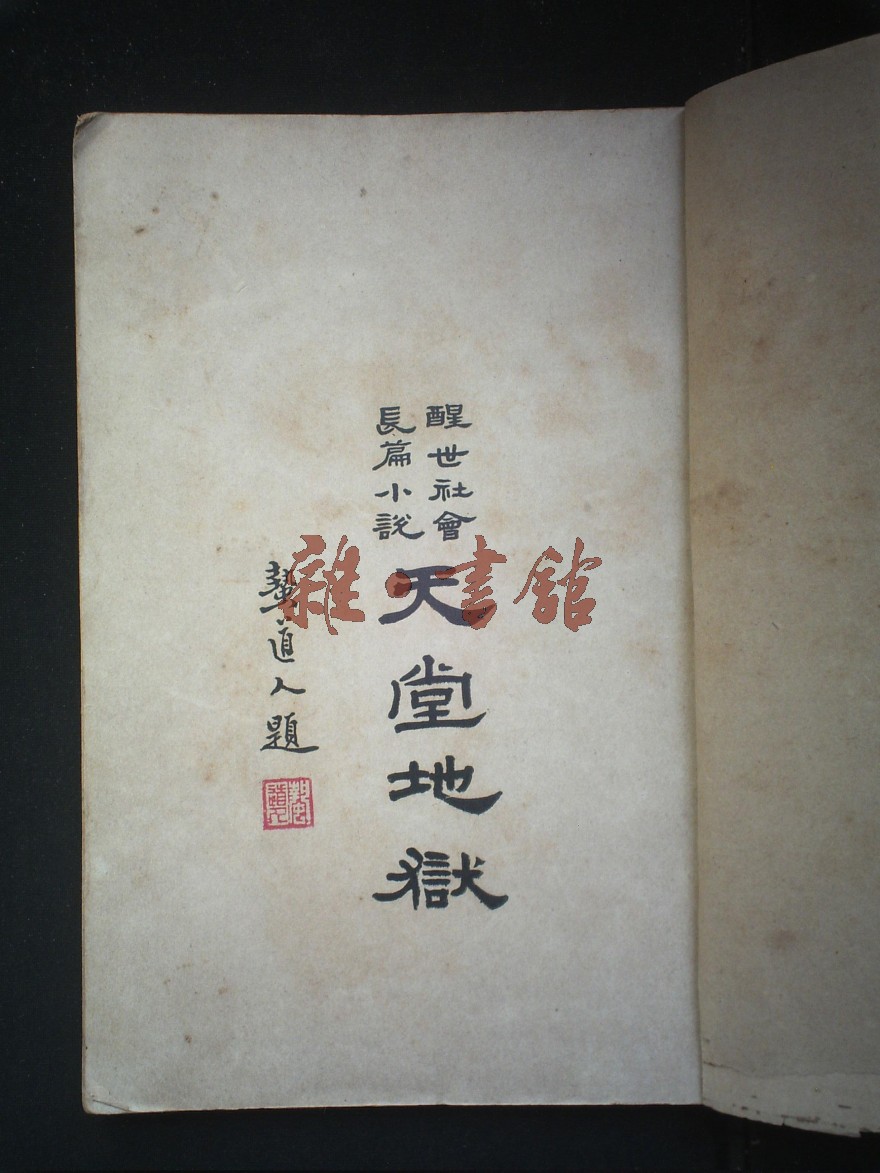 醒世社會
長篇小說
天堂地獄
蟄道人題
雜書館